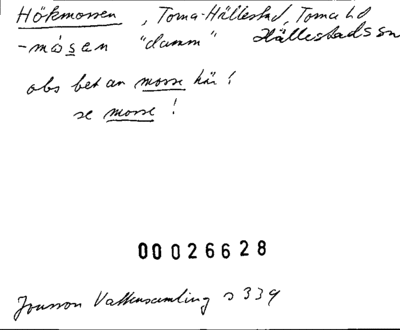 Hökmossen, Torna-Hällestad, Torna hd
-måsen "damm" Hällestads sn
obs bet an mosse här!
se mosse!
00026628
Jonsson Vattensamling s 339